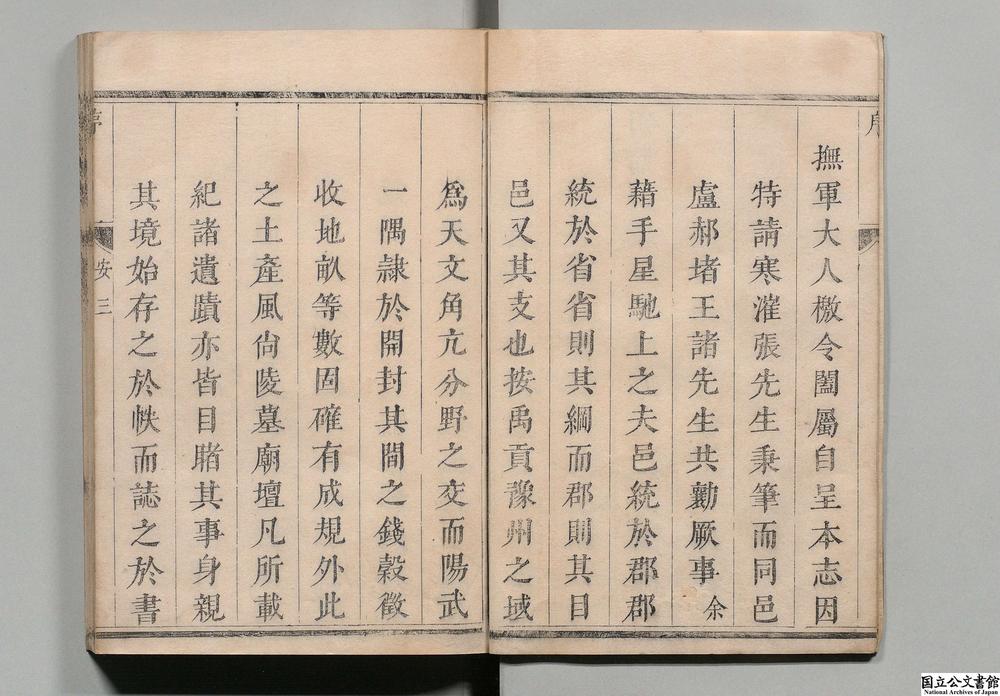 撫軍大人檄令闔屬自呈本志因
特請寒漼張先生秉筆而同邑
盧郝堵王諸先生共勷厥事余
藉手星馳上之夫邑統於郡郡
統於省省則其綱而郡則其目
邑又其支也按禹貢豫州之域
爲天文角亢分野之交而陽武
一隅隷於開封其間之錢穀徵
收地畝等數固確有成規外此
之土產風尙陵墓廟壇凡所載
紀諸遺蹟亦皆目睹其事身親
其境始存之於帙而誌之於書
安 三
国立公文書館
National Archives of Japan